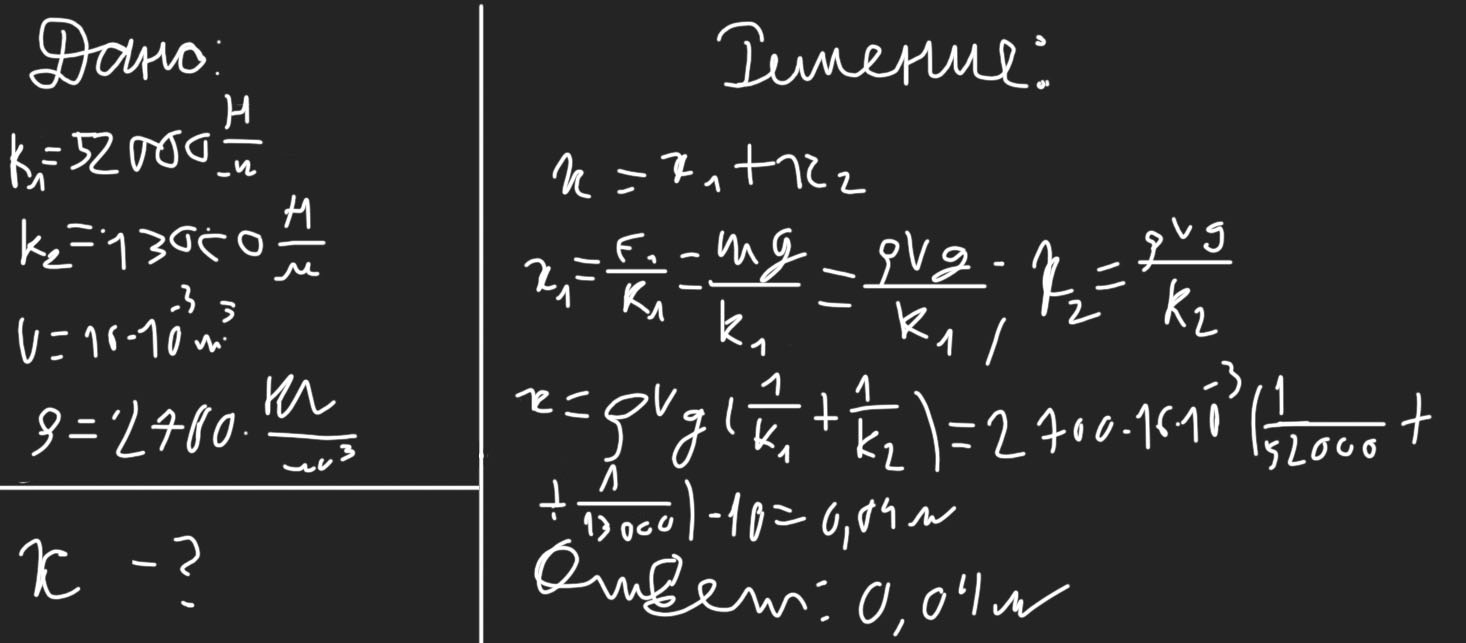 Дано:
k₁=52000 Н/м
k₂=13000 Н/м
V=16·10⁻³ м³
ρ=2700 · кг/м³
x - ?
Решение:
x = x₁+x₂
x₁ = F₁/k₁ = mg/k₁ = ρVg/k₁ , x₂ = ρVg/k₂
x = ρVg (1/k₁ + 1/k₂) = 2700·16·10⁻³ (1/52000 +
+ 1/13000) · 10 = 0,04 м
Ответ: 0,04 м